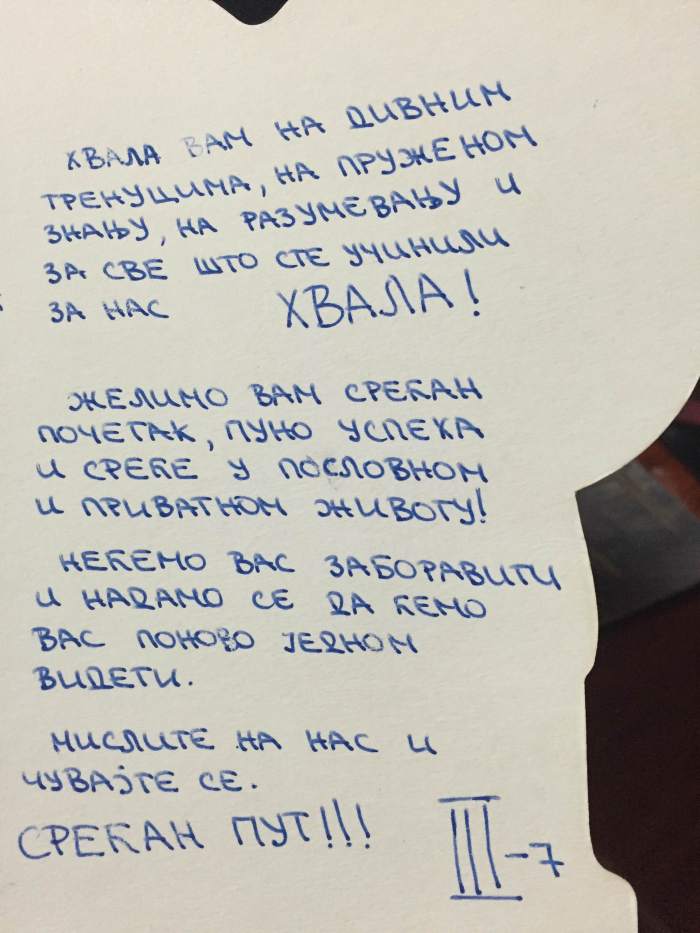 ХВАЛА ВАМ НА ДИВНИМ
ТРЕНУЦИМА, НА ПРУЖЕНОМ
ЗНАЊУ, НА РАЗУМЕВАЊУ И
ЗА СВЕ ШТО СТЕ УЧИНИЛИ
ЗА НАС ХВАЛА!
ЖЕЛИМО ВАМ СРЕЋАН
ПОЧЕТАК, ПУНО УСПЕХА
И СРЕЋЕ У ПОСЛОВНОМ
И ПРИВАТНОМ ЖИВОТУ!
НЕЋЕМО ВАС ЗАБОРАВИТИ
И НАДАМО СЕ ДА ЋЕМО
ВАС ПОНОВО ЈЕДНОМ
ВИДЕТИ.
МИСЛИТЕ НА НАС И
ЧУВАЈТЕ СЕ.
СРЕЋАН ПУТ!!!
III-7